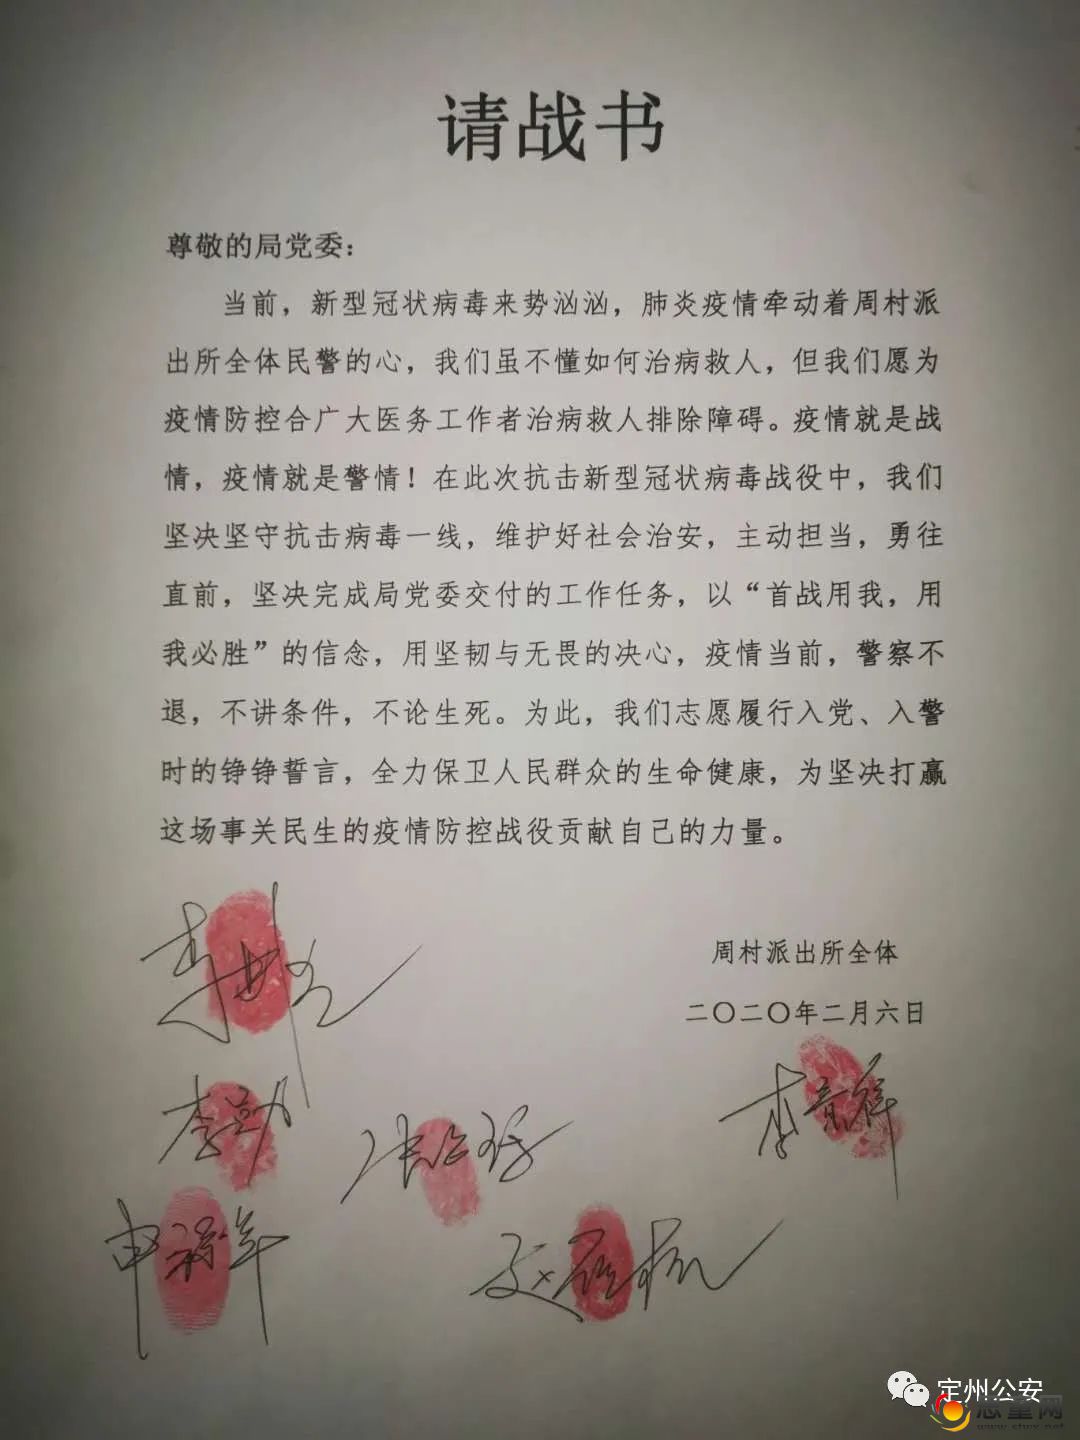 请战书
尊敬的局党委：
当前，新型冠状病毒来势汹汹，肺炎疫情牵动着周村派
出所全体民警的心，我们虽不懂如何治病救人，但我们愿为
疫情防控合广大医务工作者治病救人排除障碍。疫情就是战
情，疫情就是警情！在此次抗击新型冠状病毒战役中，我们
坚决坚守抗击病毒一线，维护好社会治安，主动担当，勇往
直前，坚决完成局党委交付的工作任务，以“首战用我，用
我必胜”的信念，用坚韧与无畏的决心，疫情当前，警察不
退，不讲条件，不论生死。为此，我们志愿履行入党、入警
时的铮铮誓言，全力保卫人民群众的生命健康，为坚决打赢
这场事关民生的疫情防控战役贡献自己的力量。
周村派出所全体
二〇二〇年二月六日
李勤
定州公安